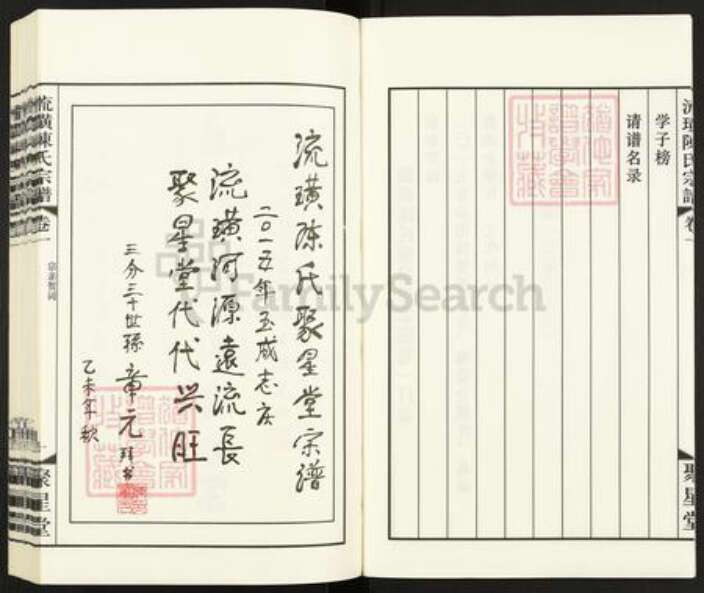 学子榜
请谱名录
流璜陈氏宗谱
卷一
聚星堂
流璜陈氏聚星堂宗谱
二〇一五年玉成志庆
流璜河源遠流長
聚星堂代代兴旺
三分三十世孫 章元 拜书
乙未年秋
流璜陳氏宗譜
卷一
宗亲贺词
聚星堂
FamilySearch